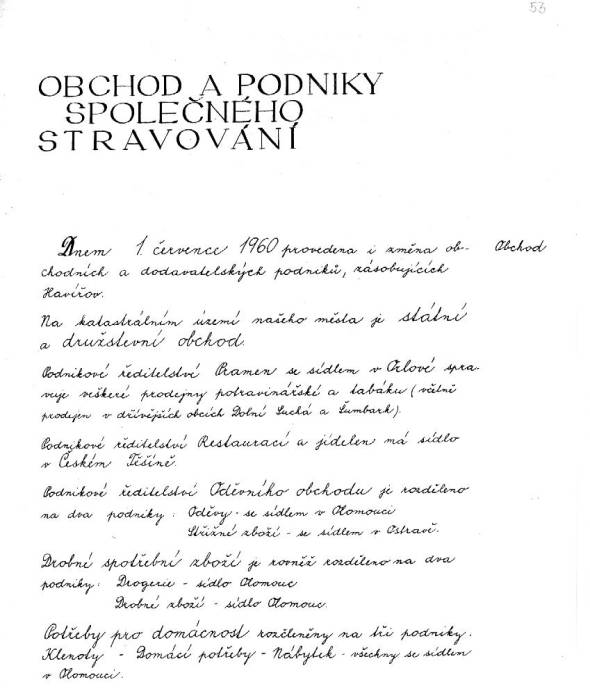 53
OBCHOD A PODNIKY
SPOLEČNÉHO
STRAVOVÁNÍ
Dnem 1. července 1960 provedena i změna ob- Obchod
chodních a dodavatelských podniků, zásobujících
Havířov.
Na katastrálním území našeho města je státní
a družstevní obchod.
Podnikové ředitelství Pramen se sídlem v Orlové spra-
vuje veškeré prodejny potravinářské a tabáku (včetně
prodejen v dřívějších obcích Dolní Suchá a Šumbark).
Podnikové ředitelství Restaurací a jídelen má sídlo
v Českém Těšíně.
Podnikové ředitelství Oděvního obchodu je rozděleno
na dva podniky: Oděvy - se sídlem v Olomouci
Střižné zboží - se sídlem v Ostravě.
Drobné spotřební zboží je rovněž rozděleno na dva
podniky: Drogerie - sídlo Olomouc
Drobné zboží - sídlo Olomouc.
Potřeby pro domácnost rozčleněny na tři podniky.
Klenoty - Domácí potřeby - Nábytek - všechny se sídlem
v Olomouci.